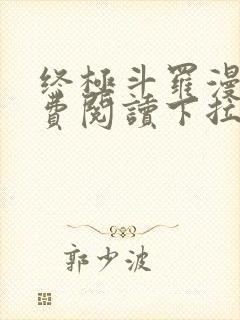 终极斗罗漫
费閱讀下拉
郭少波